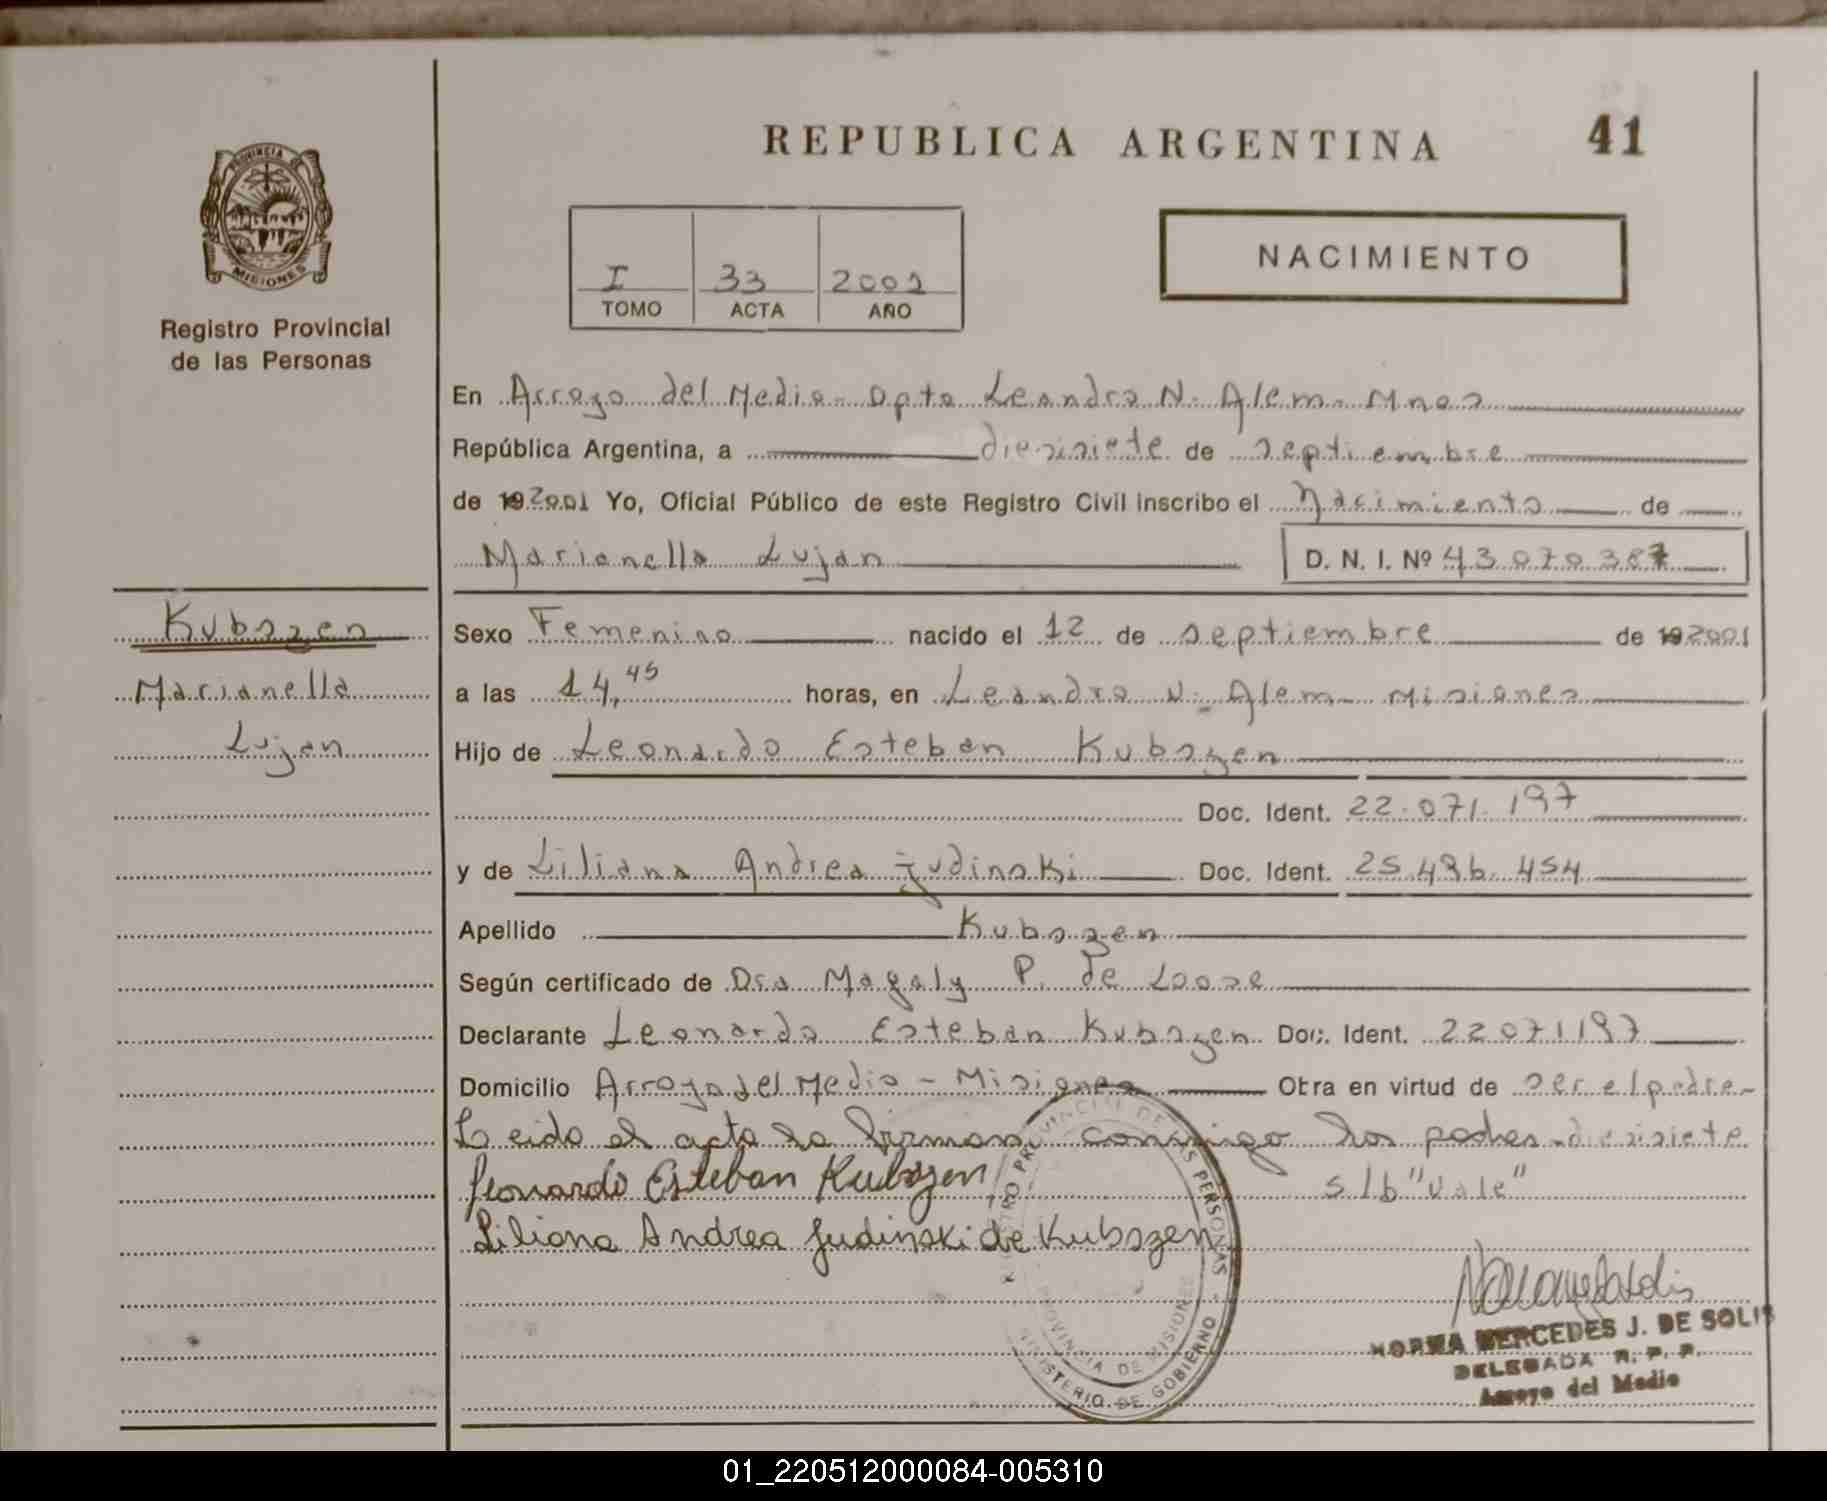 REPUBLICA ARGENTINA
41
PROVINCIA DE
MISIONES
Registro Provincial
de las Personas
I 33 2001
TOMO ACTA AÑO
NACIMIENTO
En Arroyo del Medio - Dpto Leandro N. Alem - Mnes
República Argentina, a diesisiete de septiembre
de 192001 Yo, Oficial Público de este Registro Civil inscribo el Nacimiento de
Marianella Lujan D. N. I. Nº
Kubszen
Marianella
Lujan
Sexo Femenino nacido el 12 de septiembre de 192001
a las 14,45 horas, en Leandro N. Alem - Misiones
Hijo de Leonardo Esteban Kubszen
Doc. Ident. 22.071.197
y de Liliana Andrea Judinski Doc. Ident. 25.496.454
Apellido Kubszen
Según certificado de Dra Magaly P. De Loose
Declarante Leonardo Esteban Kubszen Doc. Ident. 22071197
Domicilio Arroyo del Medio - Misiones Obra en virtud de ser el padre-
Leido el acta la firman conmigo los padres - diesisiete
Leonardo Esteban Kubszen s/b "vale"
Liliana Andrea Judinski de Kubszen
REGISTRO PROVINCIAL DE LAS PERSONAS -
PROVINCIA DE MISIONES
MINISTERIO DE GOBIERNO
NORMA MERCEDES J. DE SOLIS
DELEGADA R. P. P.
Arroyo del Medio
01_220512000084-005310